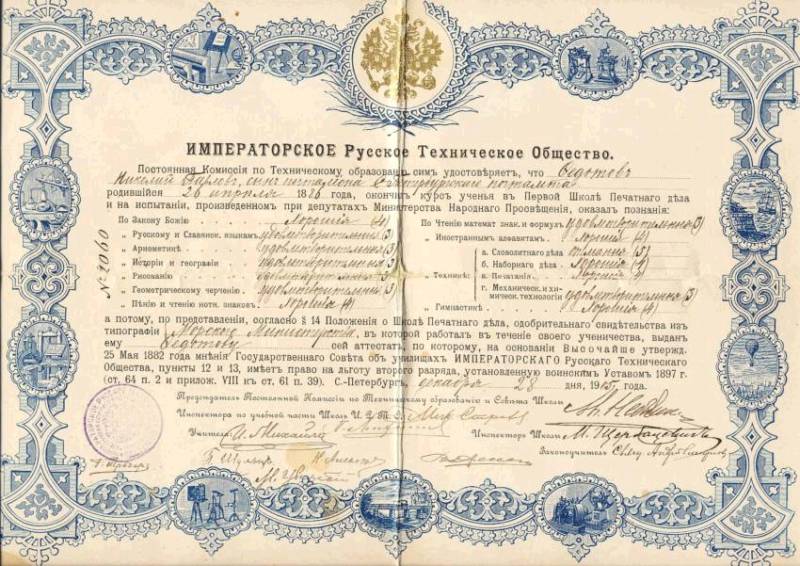 ИМПЕРАТОРСКОЕ Русское Техническое Общество.
Постоянная Комиссія по Техническому образованію симъ удостовѣряетъ, что Ѳедотовъ
Николай Павловъ, сынъ почтальона С.Петербургскаго почтамта
родившійся 26 апрѣля 1886 года, окончилъ курсъ ученья въ Первой Школѣ Печатнаго дѣла
и на испытаніи, произведенномъ при депутатахъ Министерства Народнаго Просвѣщенія, оказалъ познанія:
По Закону Божію хорошія (4)
„ Русскому и Славянск. языкамъ удовлетворительныя (3)
„ Ариѳметикѣ удовлетворительныя (3)
„ Исторіи и географіи удовлетворительныя (3)
„ Рисованію удовлетворительныя (3)
„ Геометрическому черченію удовлетворительныя (3)
„ Пѣнію и чтенію нотн. знаковъ хорошія (4)
По Чтенію математ. знак. и формулъ удовлетворительныя (3)
„ Иностраннымъ алфавитамъ хорошія (4)
„ Техникѣ:
а. Словолитнаго дѣла отличныя (5)
б. Наборнаго дѣла хорошія (4)
в. Печатанія хорошія (4)
г. Механическ. и хи-
мическ. технологіи удовлетворительныя (3)
„ Гимнастикѣ хорошія (4)
№ 2060
а потому, по представленіи, согласно § 14 Положенія о Школѣ Печатнаго дѣла, одобрительнаго свидѣтельства изъ
типографіи Морского Министерства, въ которой работалъ въ теченіе своего ученичества, выданъ
ему Ѳедотову сей аттестатъ, по которому, на основаніи Высочайше утвержд.
25 Мая 1882 года мнѣнія Государственнаго Совѣта объ училищахъ ИМПЕРАТОРСКАГО Русскаго Техническаго
Общества, пункты 12 и 13, имѣетъ право на льготу второго разряда, установленную воинскимъ Уставомъ 1897 г.
(ст. 64 п. 2 и прилож. VIII къ ст. 61 п. 39). С.-Петербургъ, декабря 28 дня, 19 года.
Предсѣдатель Постоянной Комиссіи по Техническому образованію и Совѣта Школы
Инспекторъ по учебной части Школъ И. Р. Т. О.
Учителя: Инспекторъ Школы М. Щербаковъ
Законоучитель Свящ.